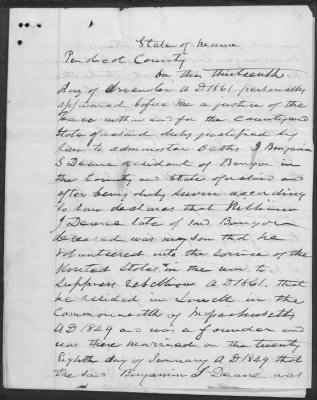 State of Maine
Penobscot County
On this thirteenth
day of December A D 1861 personally
appeared before me a justice of the
Peace within and for the County and
State aforesaid duly qualified by
law to administer Oaths I Benjamin
S Deane resident of Bangor in
the County and State aforesaid and
after being duly sworn according
to law declares that William
J Deane late of said Bangor
deceased was my son that he
volunteered into the service of the
United States in the war to
suppress rebellion A D 1861. that
he resided in Lowell in the
Commonwealth of Massachusetts
A D 1849 and was a founder and
was there married on the twenty
Eighth day of January A D 1849 that
the said Benjamin S Deane was